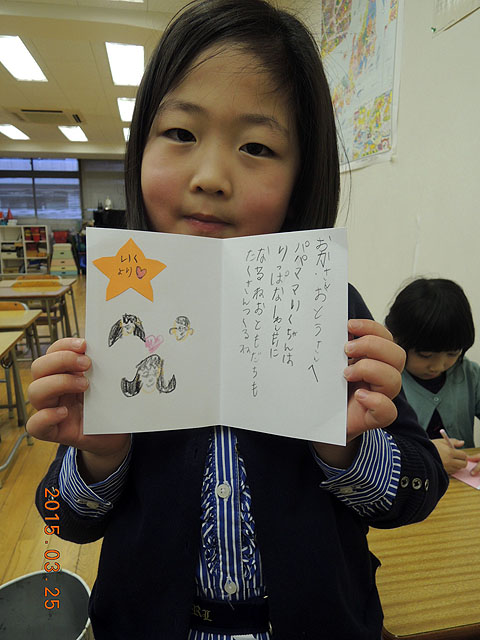 いく
より
おかあさん おとうさんへ
パパママいくちゃんは
りっぱな
になるねおともだちも
たくさんつくるね
2015.03.25
RL